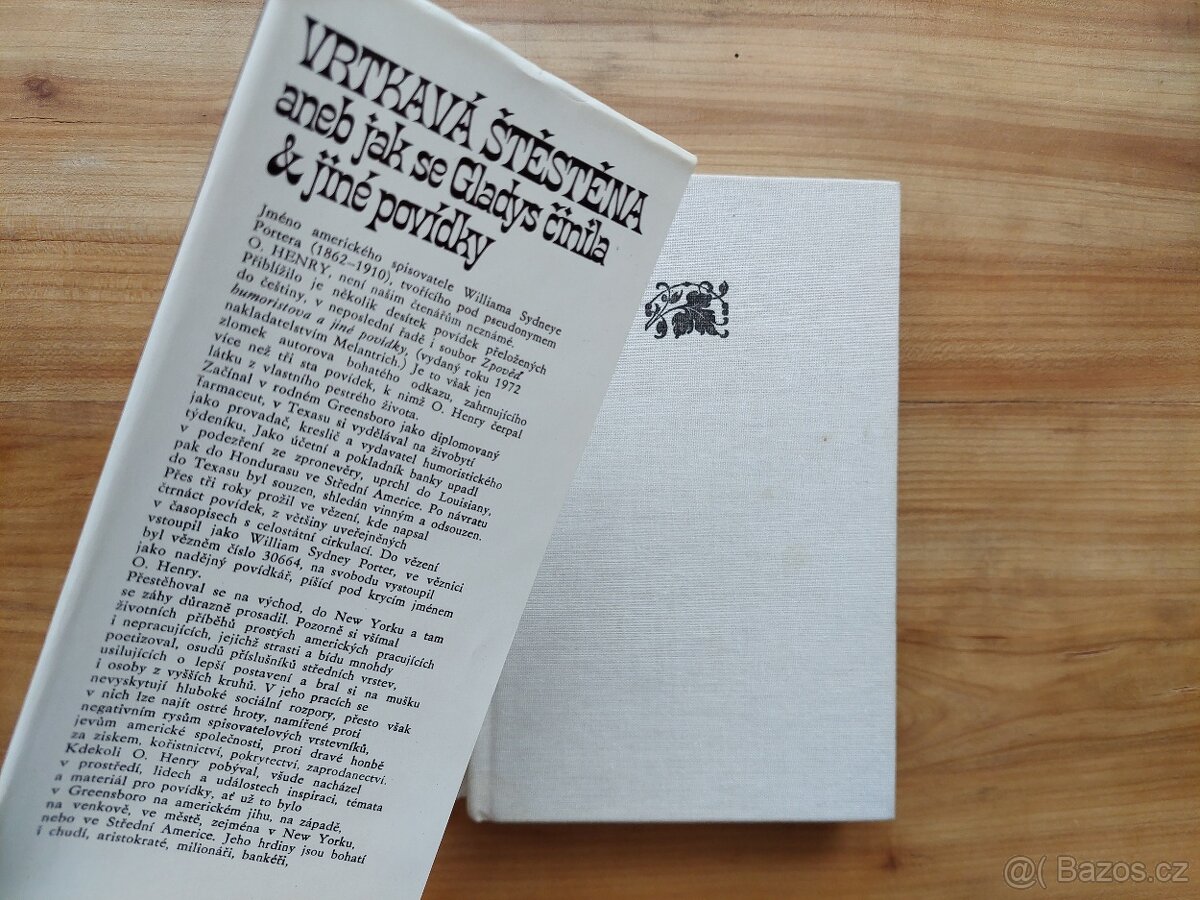 VRTKAVÁ ŠTĚSTĚNA
aneb jak se Gladys činila
& jiné povídky
Jméno amerického spisovatele Williama Sydneye
Portera (1862–1910), tvořícího pod pseudonymem
O. HENRY, není našim čtenářům neznámé.
Přiblížilo je několik desítek povídek přeložených
do češtiny, v neposlední řadě i soubor Zpověď
humoristova a jiné povídky, (vydaný roku 1972
nakladatelstvím Melantrich.) Je to však jen
zlomek autorova bohatého odkazu, zahrnujícího
více než tři sta povídek, k nimž O. Henry čerpal
látku z vlastního pestrého života.
Začínal v rodném Greensboro jako diplomovaný
farmaceut, v Texasu si vydělával na živobytí
jako provadač, kreslič a vydavatel humoristického
týdeníku. Jako účetní a pokladník banky upadl
v podezření ze zpronevěry, uprchl do Louisiany,
pak do Hondurasu ve Střední Americe. Po návratu
do Texasu byl souzen, shledán vinným a odsouzen.
Přes tři roky prožil ve vězení, kde napsal
čtrnáct povídek, z většiny uveřejněných
v časopisech s celostátní cirkulací. Do vězení
vstoupil jako William Sydney Porter, ve věznici
byl vězněm číslo 30664, na svobodu vystoupil
jako nadějný povídkář, píšící pod krycím jménem
O. Henry.
Přestěhoval se na východ, do New Yorku a tam
se záhy důrazně prosadil. Pozorně si všímal
životních příběhů prostých amerických pracujících
i nepracujících, jejichž strasti a bídu mnohdy
poetizoval, osudů příslušníků středních vrstev,
usilujících o lepší postavení a bral si na mušku
i osoby z vyšších kruhů. V jeho pracích se
nevyskytují hluboké sociální rozpory, přesto však
v nich lze najít ostré hroty, namířené proti
negativním rysům spisovatelových vrstevníků,
jevům americké společnosti, proti dravé honbě
za ziskem, kořistnictví, pokrytectví, zaprodanectví.
Kdekoli O. Henry pobýval, všude nacházel
v prostředí, lidech a událostech inspiraci, témata
a materiál pro povídky, ať už to bylo
v Greensboro na americkém jihu, na západě,
na venkově, ve městě, zejména v New Yorku,
nebo ve Střední Americe. Jeho hrdiny jsou bohatí
i chudí, aristokraté, milionáři, bankéři,
@( Bazos.cz